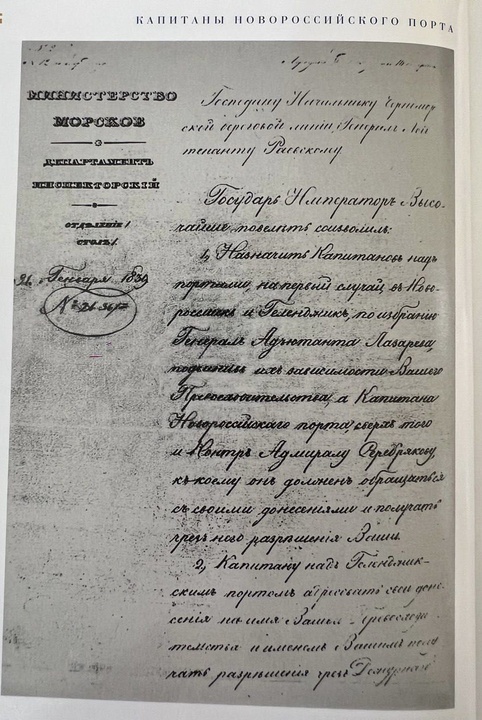 КАПИТАНЫ НОВОРОССИЙСКОГО ПОРТА
МИНИСТЕРСТВО
МОРСКОЕ
ДЕПАРТАМЕНТЪ
ИНСПЕКТОРСКІЙ
ОТДѢЛЕНІЕ 1
СТОЛЪ 1
Генваря 1839
Господину Начальнику Черномор
ской береговой линіи, Генералъ Лей
тенанту Раевскому.
Государь Императоръ Высо-
чайше повелѣть соизволилъ:
1, Назначить Капитановъ надъ
портами, на первый случай, въ Ново-
россійскъ и Геленджикъ, по избранію
Генералъ Адъютанта Лазарева,
подчинивъ ихъ зависимости Вашего
Превосходительства, а Капитана
Новороссійскаго порта, сверхъ того
и Контръ Адмиралу Серебрякову,
къ коему онъ долженъ обращаться
съ своими донесеніями и получать
чрезъ него разрѣшенія Ваши.
2, Капитану надъ Геленджик-
скимъ портомъ адресовать свои доне-
сенія на имя Вашего Превосходи
тельства и именемъ Вашимъ полу
чать разрѣшенія чрезъ